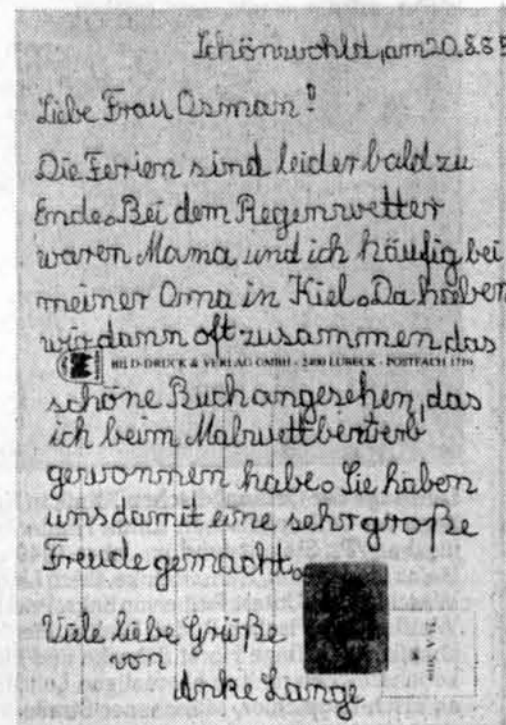 Schönwohld, am 20.8.8
Liebe Frau Osman!
Die Ferien sind leider bald zu
Ende. Bei dem Regenwetter
waren Mama und ich häufig bei
meiner Oma in Kiel. Da haben
wir dann oft zusammen das
BILD-DRUCK & VERLAG GMBH · 2400 LÜBECK · POSTFACH 1719
schöne Buch angesehen, das
ich beim Malwettbewerb
gewonnen habe. Sie haben
uns damit eine sehr große
Freude gemacht.
Viele liebe Grüße
von
Anke Lange